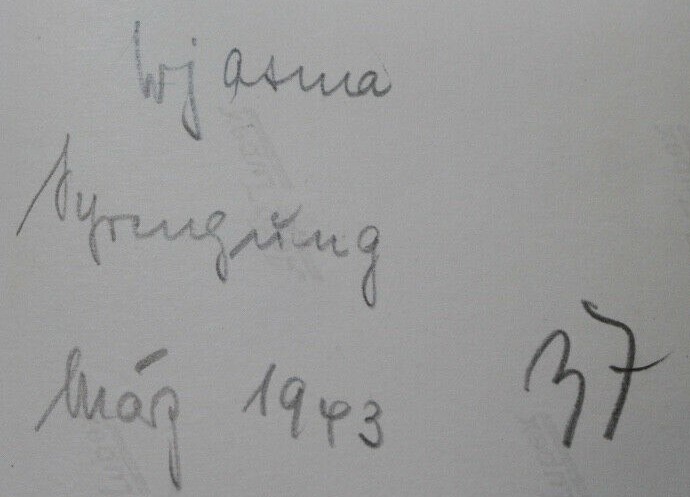 Wjasma
Sprengung
März 1943
37